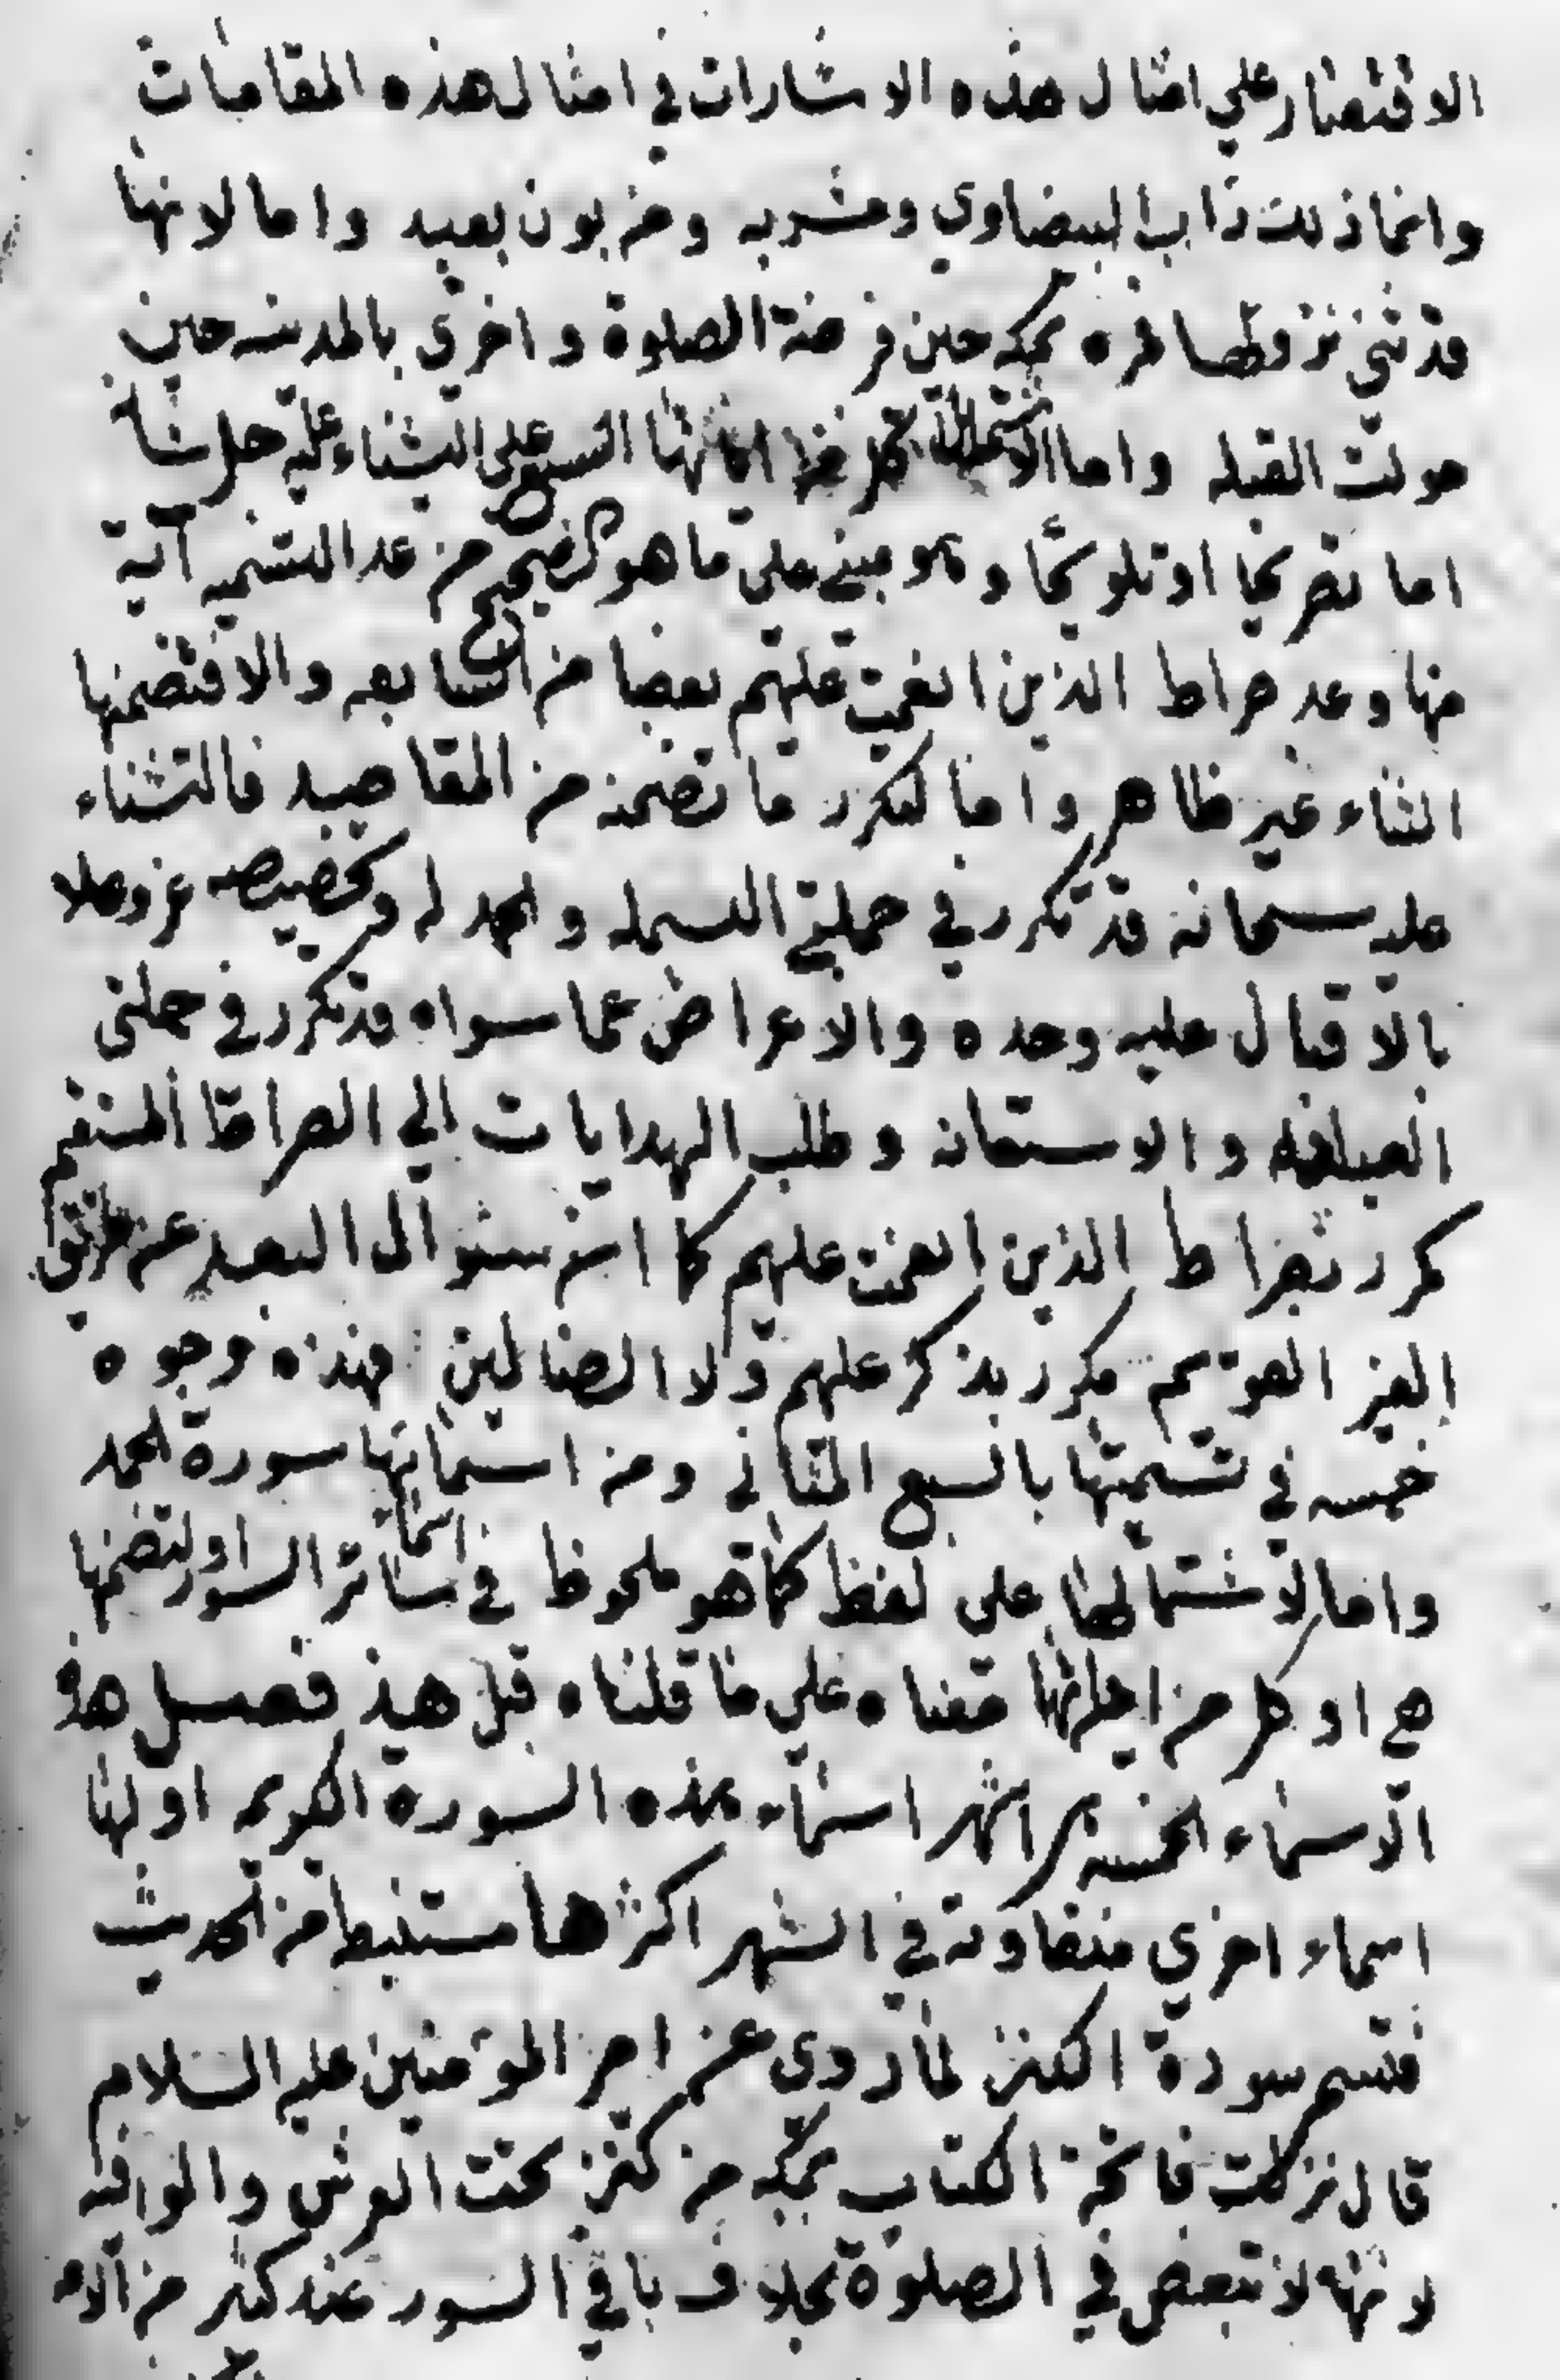 الاقتصار علي امثال هذه الاشارات في امثال هذه المقامات
وانما ذلك داب البيضاوي ومشربه ومن بون بعيد واما لانها
قد ثني نزولها فمره بمكه حين فرضت الصلوة واخري بالمدينه حين
حولت القبله واما لاشتمال كل من اياتها السبع علي الثناء عليه جل شانه
اما تصريحا او تلويحا وهو مبني علي ما هو الصحيح من عد التسميه آية
منها وعد صراط الذين انعمت عليهم بعضا من السابعه والا فتضمنها
الثناء غير ظاهر واما لتكرر ما تضمنه من المقاصد فالثناء
عليه سبحانه قد تكرر في جملتي البسمله والحمد له وتخصيصه عز وعلا
بالاقبال عليه وحده والاعراض عما سواه قد تكرر في جملتي
العباده والاستعانه وطلب الهدايات الي الصراط المستقيم
مكرر بصراط الذين انعمت عليهم كما ان سئوال البعد عن طريق
الغير القويم مكرر بذكر عليهم ولا الضالين فهذه وجوه
خمسه في تسميتها بالسبع المثاني ومن اسمائها سورة الحمد
واما لاشتمالها علي لفظ كما هو ملحوظ في اسماء سائر السور او لتضمنها
هي او كل من اياتها معناه علي ما قلناه قبل هذ فصل هذه
الاسماء الخمسه اشهر اسماء هذه السورة الكريمه اولها
اسماء اخري متفاوته في الشهر اكثرها مستنبط من الحديث
فتسم سورة الكنز لما روي عن امير المؤمنين عليه السلام
قال نزلت فاتحة الكتاب بمكه من كنز تحت العرش والوافيه
لانها لا تبعض في الصلوة بخلاف باقي السور عند كثير من الامه